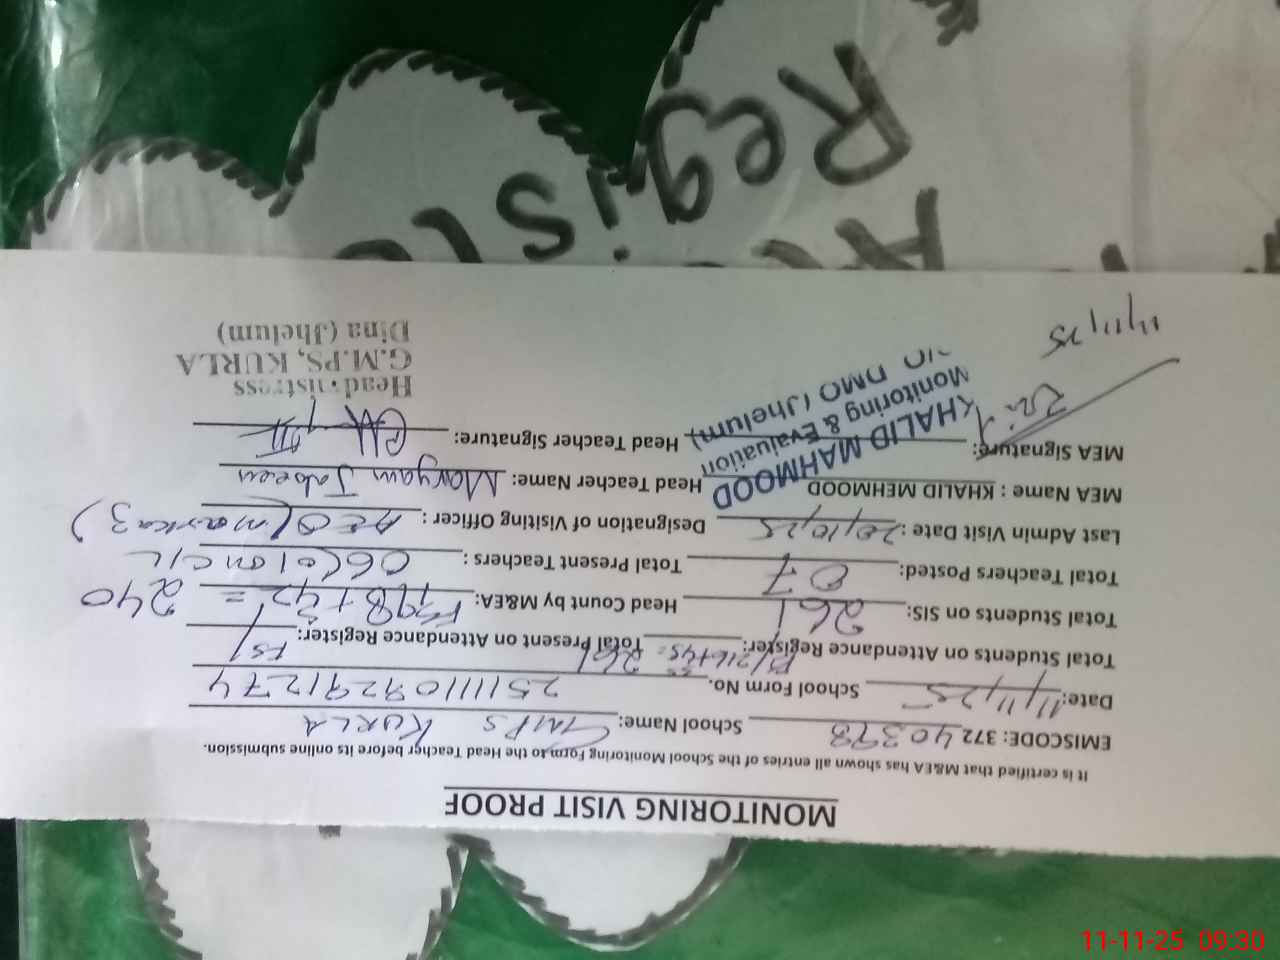 MONITORING VISIT PROOF
It is certified that M&EA has shown all entries of the School Monitoring Form to the Head Teacher before its online submission.
EMISCODE: 372 40398 School Name: GMPS KURLA
Date: 11/11/25 School Form No. 251111092912 74
Total Students on Attendance Register: P/216+45= 261 Total Present on Attendance Register:
Total Students on SIS: 261 Head Count by M&EA: = 240
Total Teachers Posted: 07 Total Present Teachers: 06(01 on C/L
Last Admin Visit Date: 20/10/25 Designation of Visiting Officer: AEO (markaz)
MEA Name : KHALID MEHMOOD Head Teacher Name: Maryam Jabeen
MEA Signature: Head Teacher Signature:
KHALID MAHMOOD
Monitoring & Evaluation
DMO (Jhelum)
11/11/25
Headmistress
G.M.PS, KURLA
Dina (Jhelum)
Regist
11-11-25 09:30